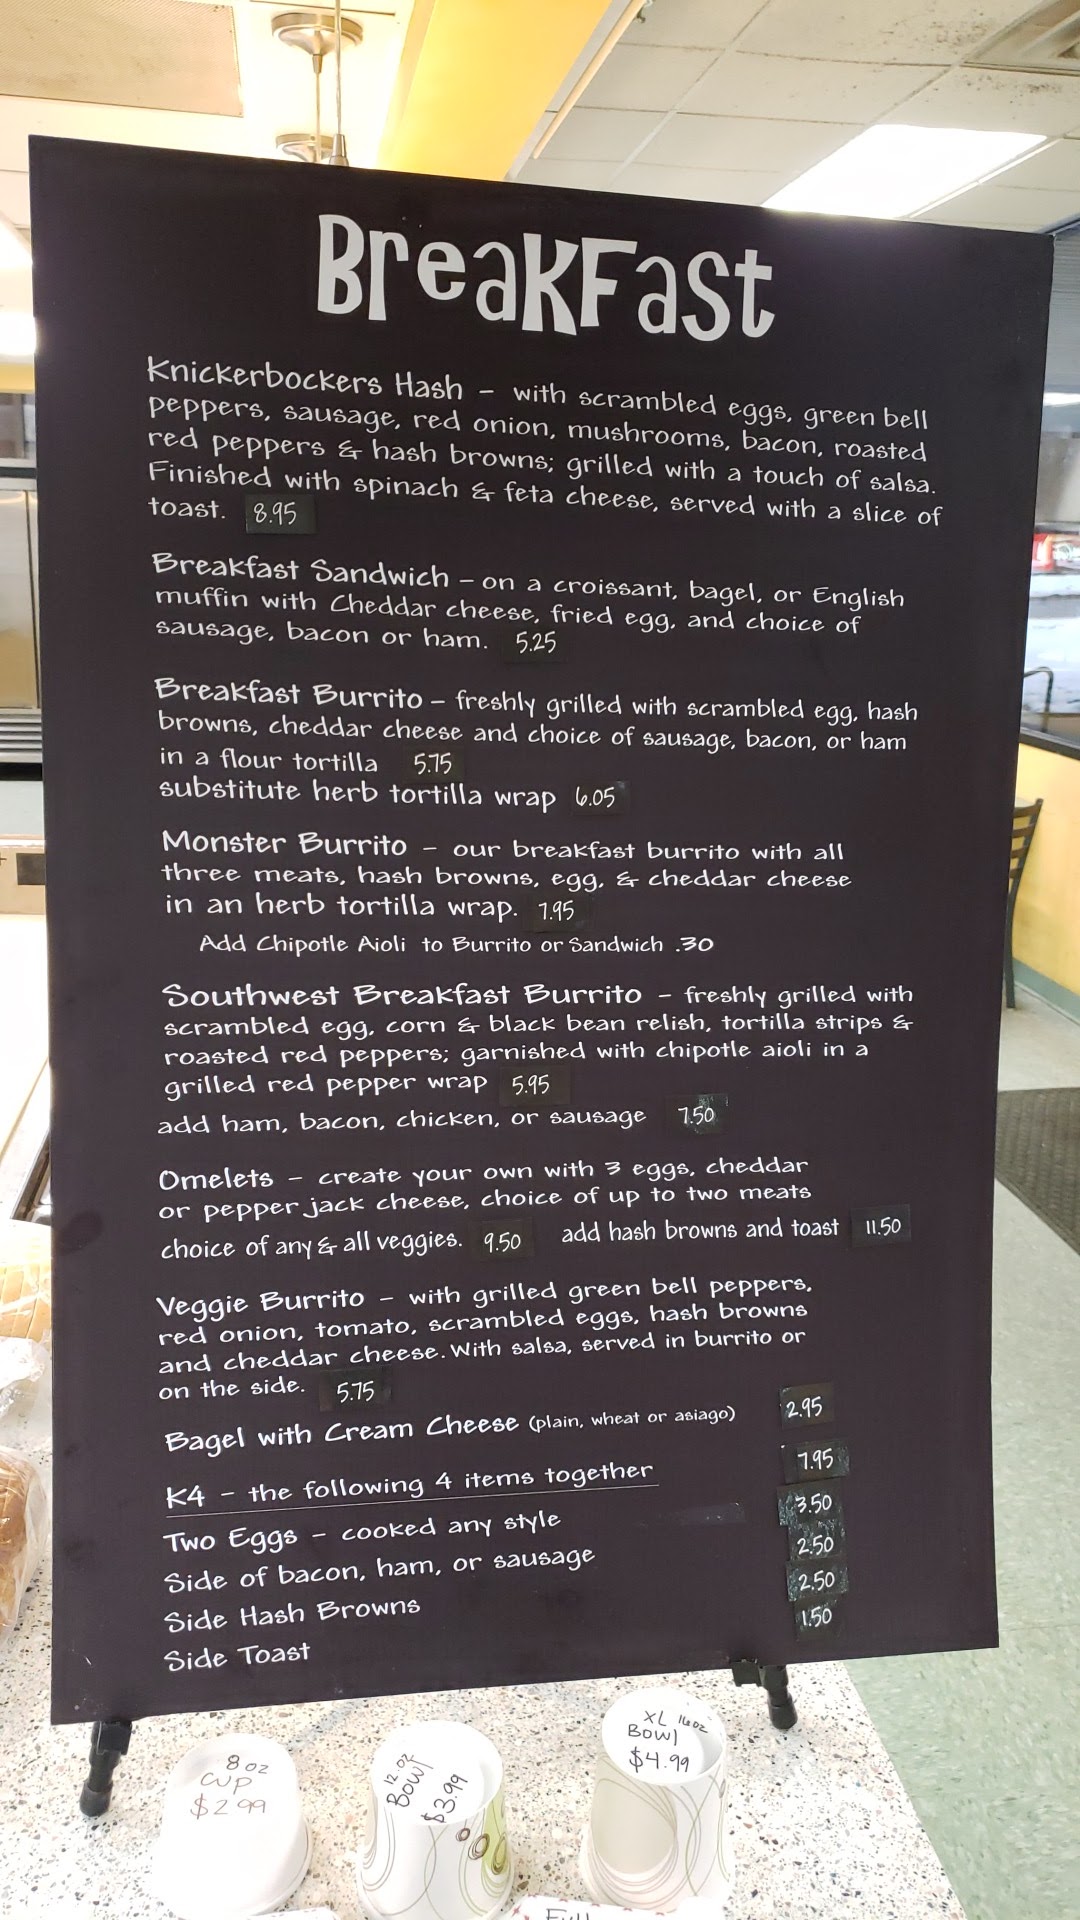 BreakFast
Knickerbockers Hash – with scrambled eggs, green bell
peppers, sausage, red onion, mushrooms, bacon, roasted
red peppers & hash browns; grilled with a touch of salsa.
Finished with spinach & feta cheese, served with a slice of
toast. 8.95
Breakfast Sandwich – on a croissant, bagel, or English
muffin with Cheddar cheese, fried egg, and choice of
sausage, bacon or ham. 5.25
Breakfast Burrito – freshly grilled with scrambled egg, hash
browns, cheddar cheese and choice of sausage, bacon, or ham
in a flour tortilla 5.75
substitute herb tortilla wrap 6.05
Monster Burrito – our breakfast burrito with all
three meats, hash browns, egg, & cheddar cheese
in an herb tortilla wrap. 7.95
Add Chipotle Aioli to Burrito or Sandwich .30
Southwest Breakfast Burrito – freshly grilled with
scrambled egg, corn & black bean relish, tortilla strips &
roasted red peppers; garnished with chipotle aioli in a
grilled red pepper wrap 5.95
add ham, bacon, chicken, or sausage 7.50
Omelets – create your own with 3 eggs, cheddar
or pepper jack cheese, choice of up to two meats
choice of any & all veggies. 9.50 add hash browns and toast 11.50
Veggie Burrito – with grilled green bell peppers,
red onion, tomato, scrambled eggs, hash browns
and cheddar cheese. With salsa, served in burrito or
on the side. 5.75
Bagel with Cream Cheese (plain, wheat or asiago) 2.95
K4 – the following 4 items together 7.95
Two Eggs – cooked any style 3.50
Side of bacon, ham, or sausage 2.50
Side Hash Browns 2.50
Side Toast 1.50
8 oz
CUP
$2.99
12 oz
BOWl
$3.99
XL 16oz
BOWl
$4.99